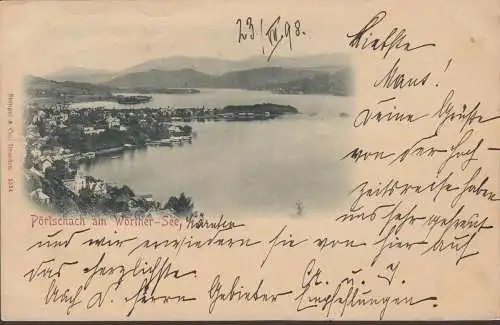 23/IV.98.
Liebste
Maus!
Deine Grüße
von der Hoch-
zeitsreise haben
uns sehr gefreut
Stengel & Co., Dresden. 1034
Pörtschach am Wörther-See, Kärnten
und wir erwiedern sie von hier auf
das herzlichste. Ct. u. J.
Auch d. Herrn Gebieter Empfehlungen.